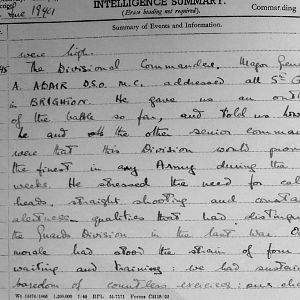 INTELLIGENCE SUMMARY.
June 1944
(Erase heading not required).
Commanding
Summary of Events and Information.
were high.
The Divisional Commander, Major Gene
A. ADAIR D.S.O. M.C. addressed all 5th G
in BRIGHTON. He gave us an
of the battle so far, and told us how
he and the other senior comman
were that this Division would prove
the finest in any Army during the
weeks. He stressed the need for cal
heads, straight shooting and constan
alertness – qualities that had distingu
the Guards Division in the last war. Ou
morale had stood the strain of four
waiting and training: we had sustain
boredom of countless exercises; our
Wt 1,200,000 7/40 BPL 51/7171 Forms C2118/22